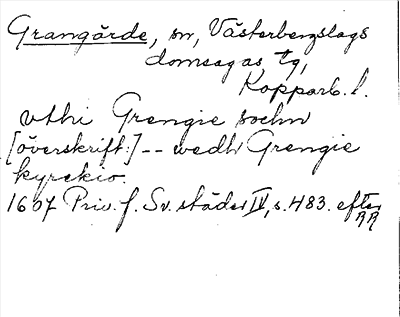 Grangärde, sn, Västerbergslags
domsagas tg,
Kopparb. l.
vthi Grengie sochn
[överskrift:] -- wedh Grengie
kyrckio.
1607 Priv. f. Sv. städer IV, s. 483. efter
RR